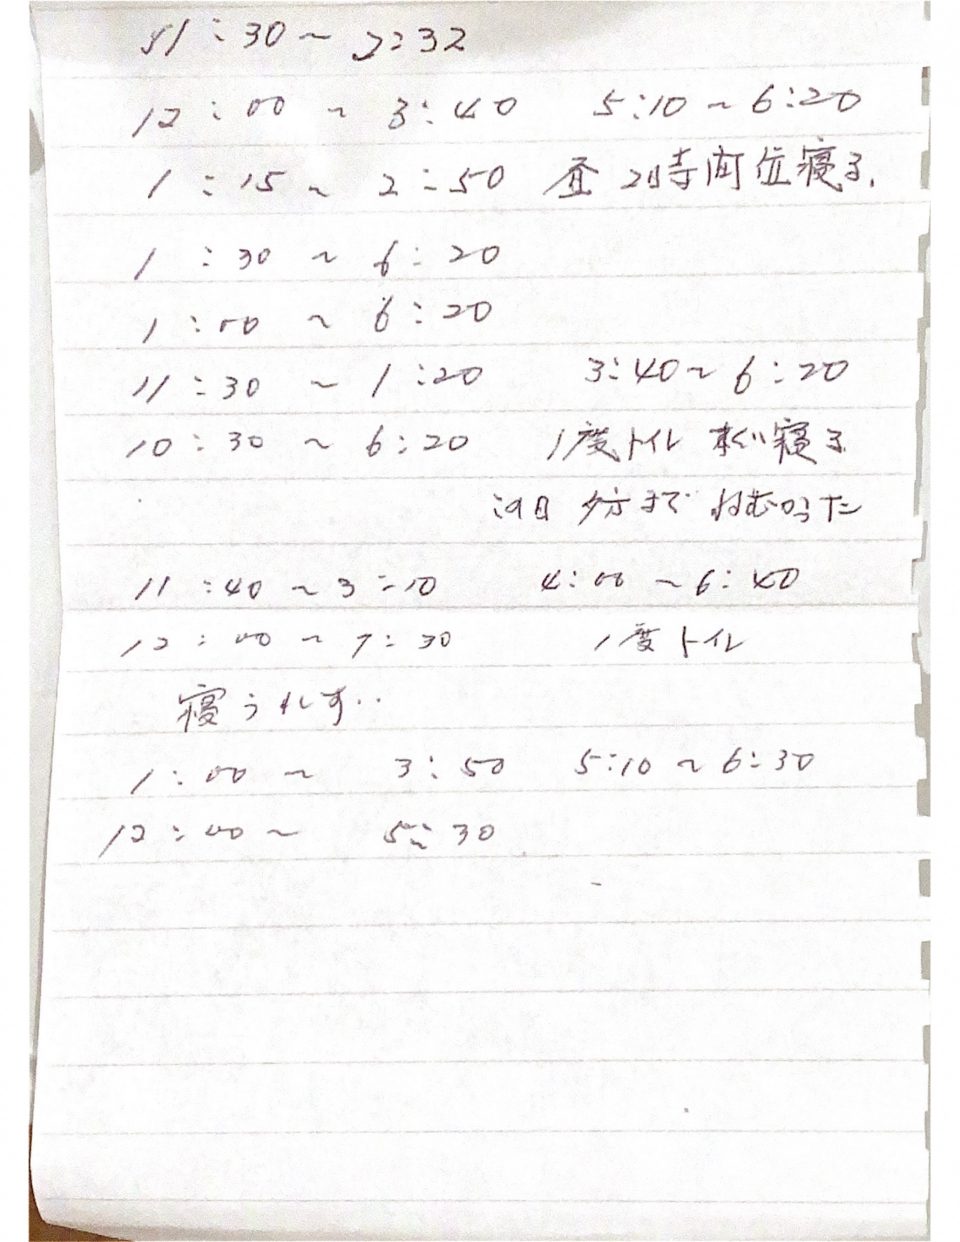 11:30～2:32
12:00～3:40 5:10～6:20
1:15～2:50 昼 2時間位寝る、
1:30～6:20
1:00～6:20
11:30～1:20 3:40～6:20
10:30～6:20 1度トイレ 寝る
この日 夕方まで ねむかった
11:40～3:10 4:00～6:40
12:00～7:30 1度トイレ
寝られず‥
1:00～3:50 5:10～6:30
12:00～5:30